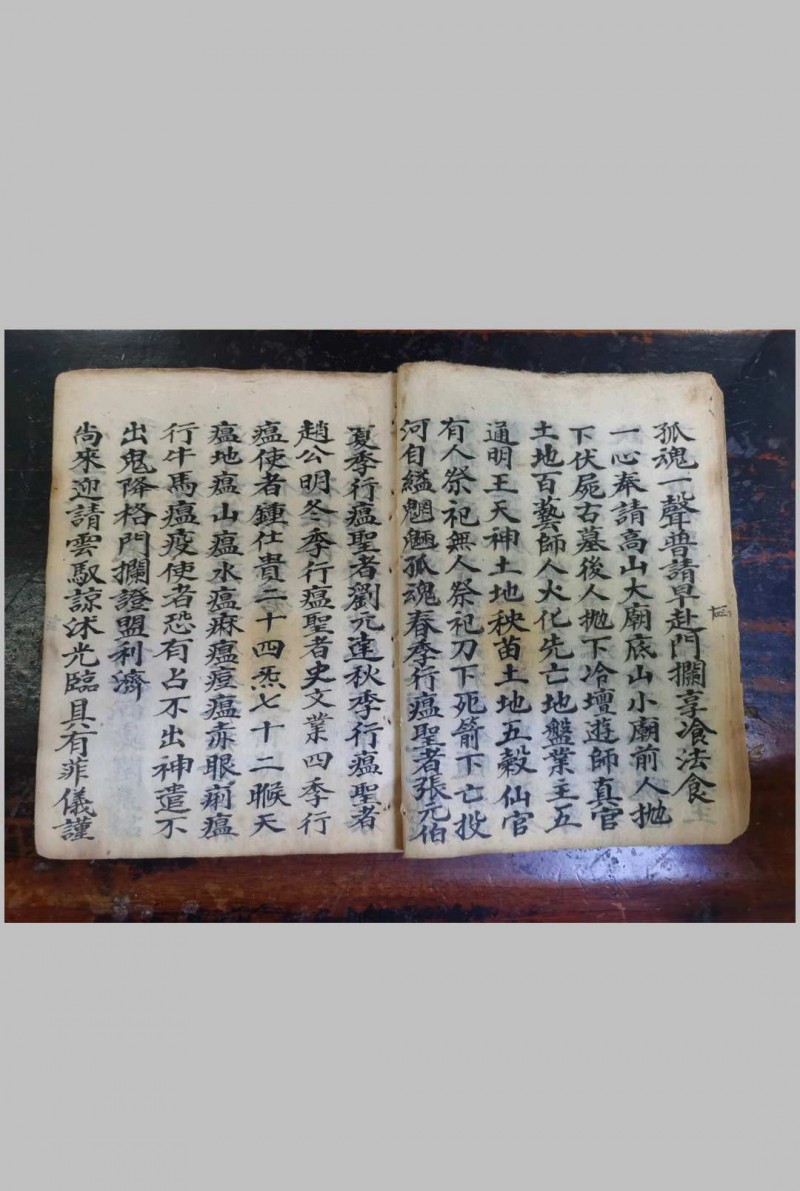 孤魂一聲普請早赴門攔享飡法食
一心奉請高山大廟底山小廟前人拋
下伏屍古墓後人拋下冷壇遊師真官
土地百藝師人火化先亡地盤業主五
通明王天神土地秧苗土地五穀仙官
有人祭祀無人祭祀刀下死箭下亡投
河自縊魍魎孤魂春季行瘟聖者張元伯
夏季行瘟聖者劉元達秋季行瘟聖者
趙公明冬季行瘟聖者史文業四季行
瘟使者鍾仕貴二十四炁七十二㬋天
瘟地瘟山瘟水瘟痳瘟痘瘟赤眼痢瘟
行牛馬瘟疫使者恐有占不出神遣不
出鬼降格門攔證盟利濟
尚來迎請雲馭諒沐光臨具有菲儀謹